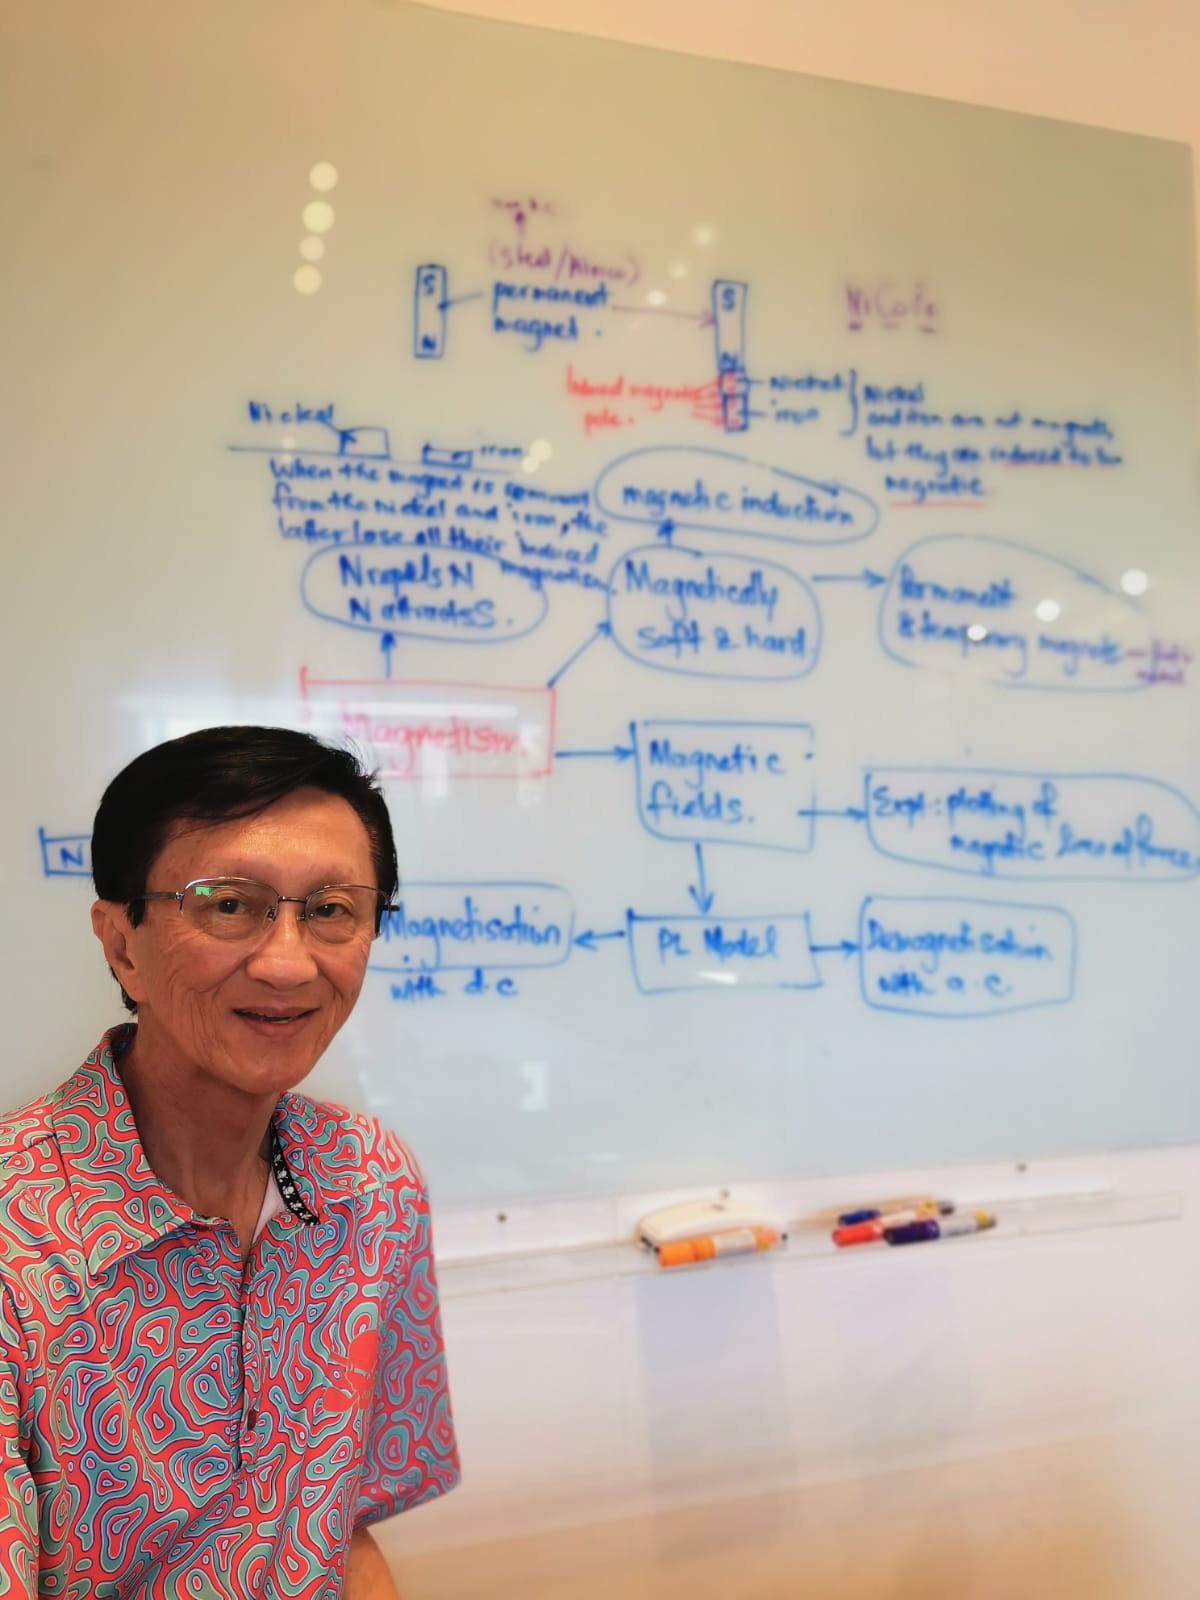 (steel/Alnico)
S
permanent
magnet.
N
S
N
NiCoFe
Induced magnetic
pole.
Nickel
iron
Nickel
and iron are not magnets,
but they can induced to be
magnetic
Nickel
iron
When the magnet is removed
from the nickel and iron, the
latter lose all their induced
magnetism.
magnetic induction
N repels N
N attracts S.
Magnetically
soft & hard.
Permanent
& temporary magnets
Magnetism.
Magnetic
fields.
Expt: plotting of
magnetic lines of force
N
Magnetisation
with d.c
PL Model
Demagnetisation
with a.c.